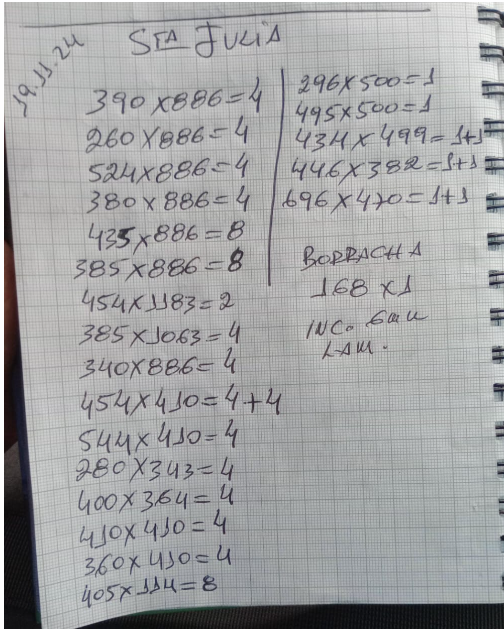 19.11.24
STA JULIA
390 x 886 = 4
260 x 886 = 4
524 x 886 = 4
380 x 886 = 4
435 x 886 = 8
385 x 886 = 8
454 x 1183 = 2
385 x 1063 = 4
340 x 886 = 4
454 x 410 = 4 + 4
544 x 410 = 4
280 x 343 = 4
400 x 364 = 4
410 x 410 = 4
360 x 410 = 4
405 x 114 = 8
296 x 500 = 1
495 x 500 = 1
434 x 499 = 1+1
446 x 382 = 1+1
696 x 470 = 1+1
BORRACHA
168 x 1
INC. 6mm
LAM.